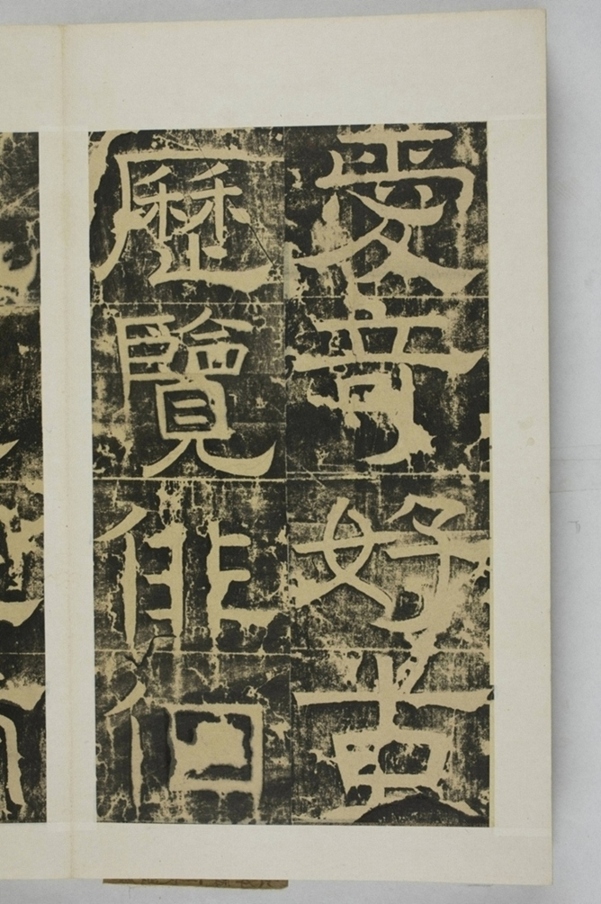 愛奇好古
歷覽俳佪